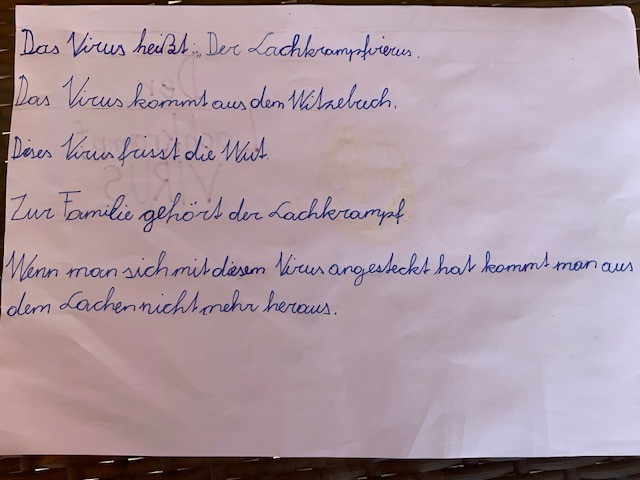 Das Virus heißt: „Der Lachkrampfvierus.
Das Virus kommt aus dem Witzebuch.
Dieses Virus frisst die Wut.
Zur Familie gehört der Lachkrampf
Wenn man sich mit diesem Virus angesteckt hat kommt man aus
dem Lachen nicht mehr heraus.